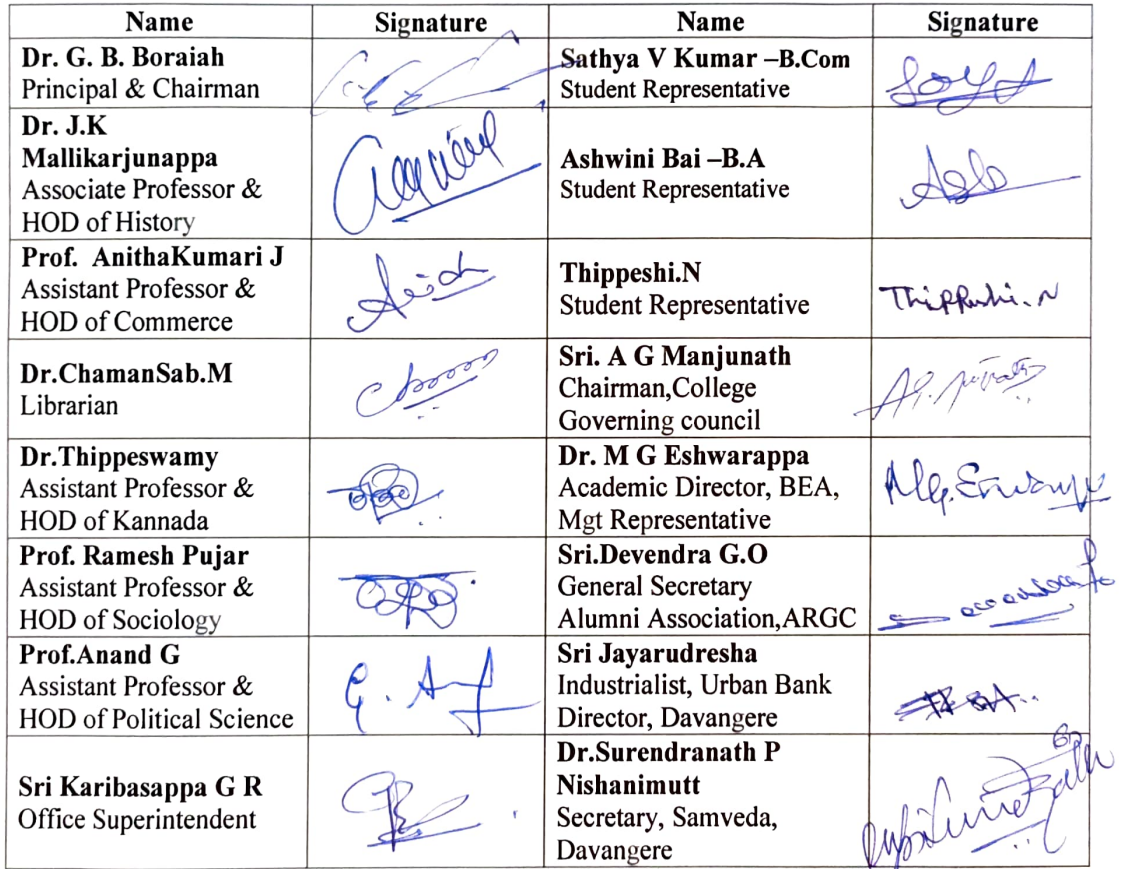 Name Signature Name Signature
Dr. G. B. Boraiah
Principal & Chairman
Sathya V Kumar –B.Com
Student Representative
Dr. J.K
Mallikarjunappa
Associate Professor &
HOD of History
Ashwini Bai –B.A
Student Representative
Prof. AnithaKumari J
Assistant Professor &
HOD of Commerce
Thippeshi.N
Student Representative
Thippeshi. N
Dr.ChamanSab.M
Librarian
Sri. A G Manjunath
Chairman,College
Governing council
Dr.Thippeswamy
Assistant Professor &
HOD of Kannada
Dr. M G Eshwarappa
Academic Director, BEA,
Mgt Representative
Prof. Ramesh Pujar
Assistant Professor &
HOD of Sociology
Sri.Devendra G.O
General Secretary
Alumni Association,ARGC
Prof.Anand G
Assistant Professor &
HOD of Political Science
Sri Jayarudresha
Industrialist, Urban Bank
Director, Davangere
Sri Karibasappa G R
Office Superintendent
Dr.Surendranath P
Nishanimutt
Secretary, Samveda,
Davangere